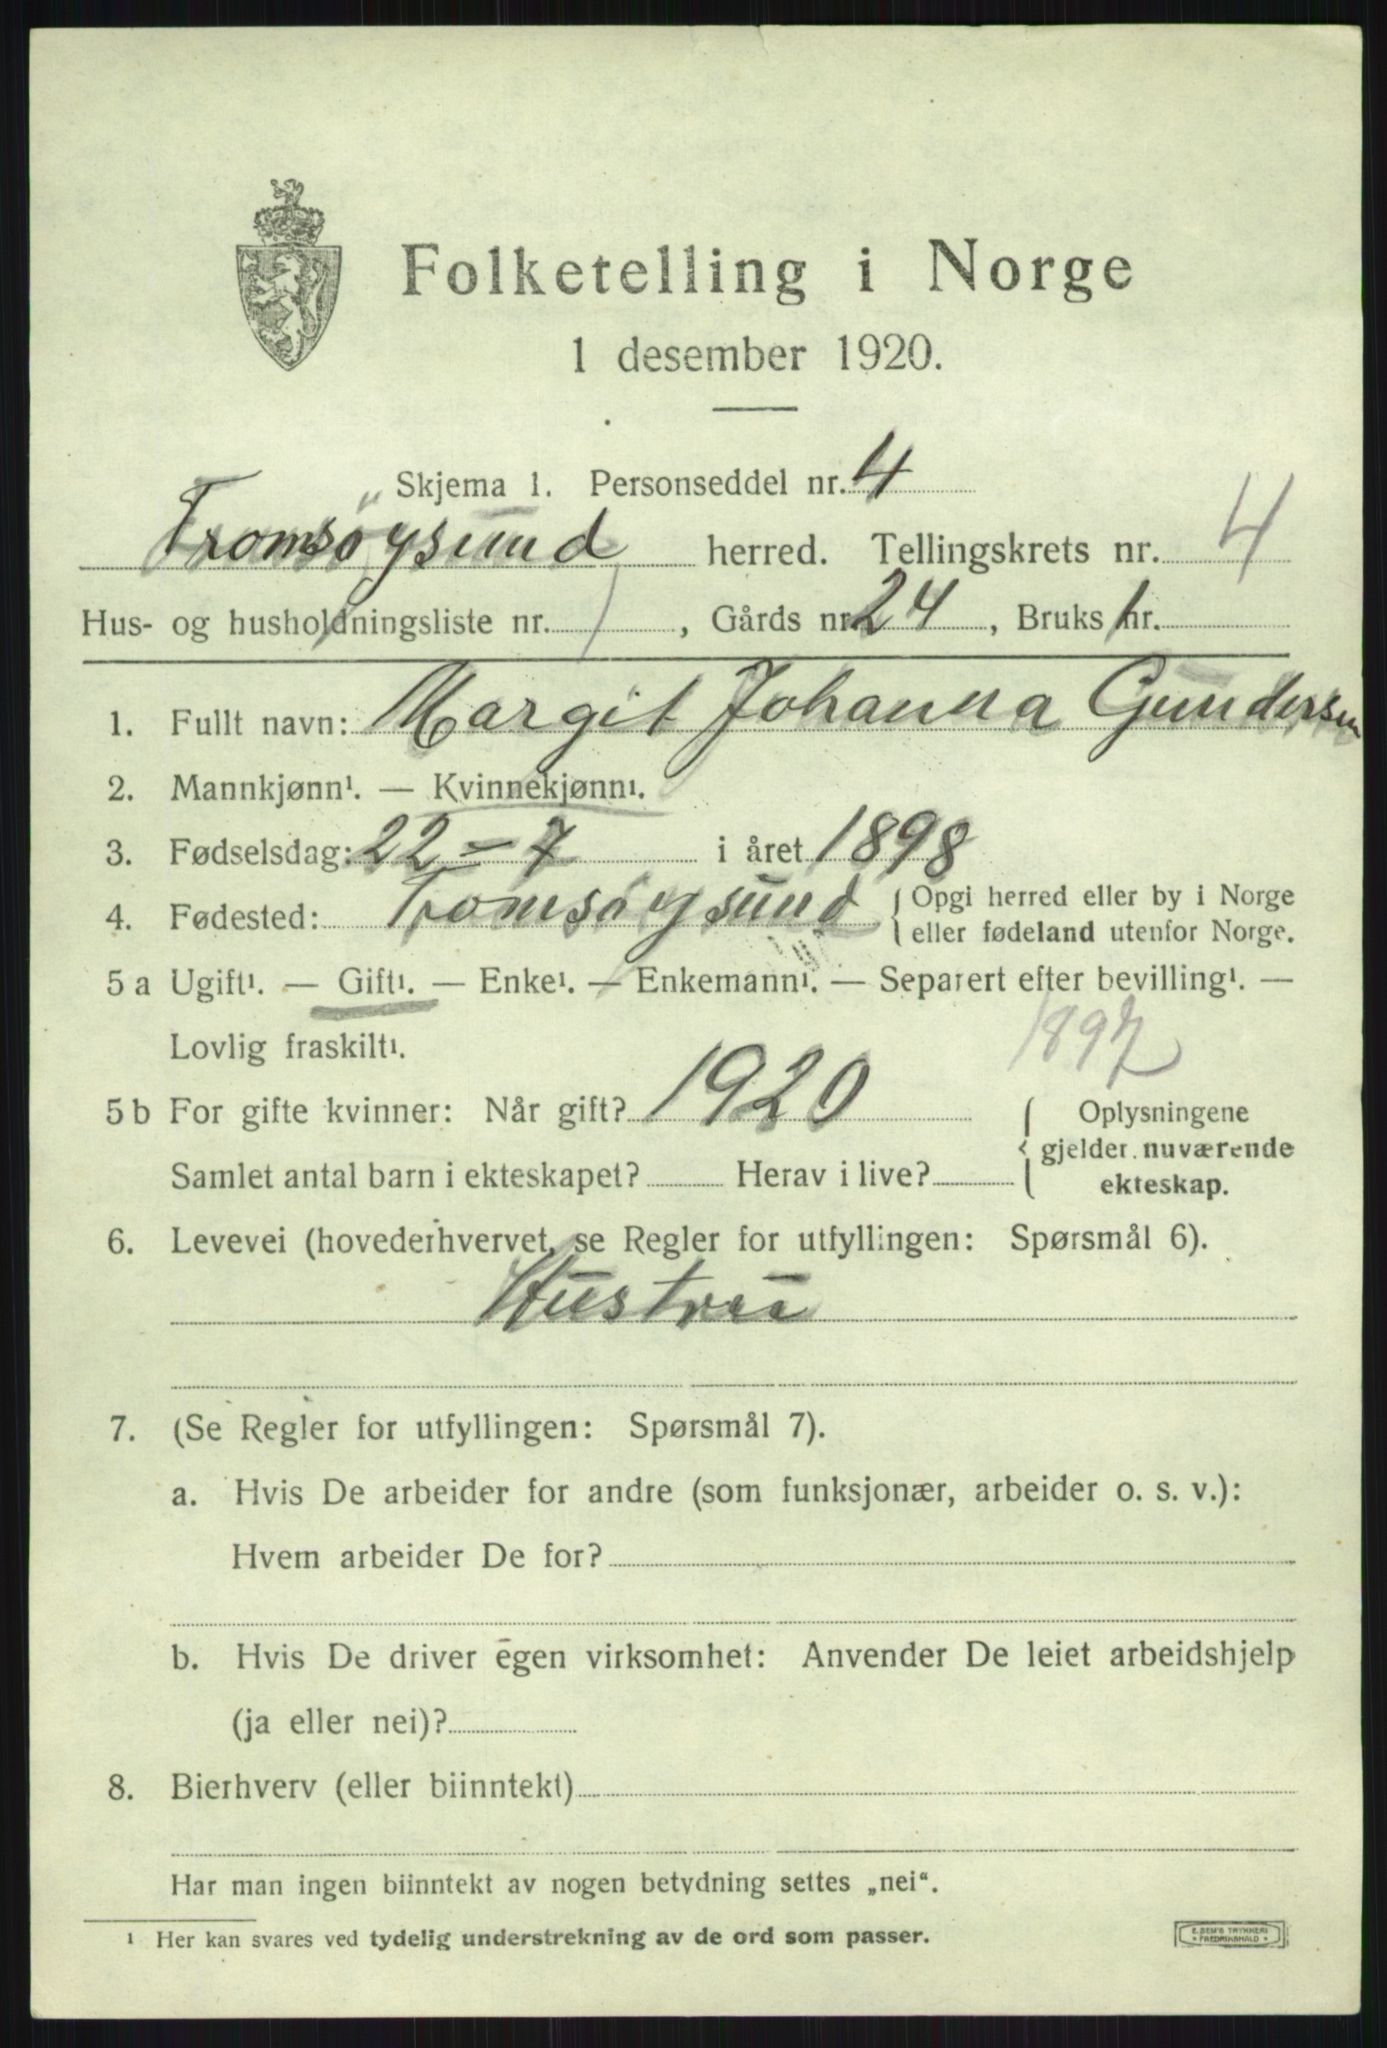 Folketelling i Norge
1 desember 1920.
Skjema 1. Personseddel nr. 4
Tromsøysund herred. Tellingskrets nr. 4
Hus- og husholdningsliste nr. 1, Gårds nr. 24, Bruks nr. 1
1. Fullt navn: Margit Johanna Gundersen
2. Mannkjønn¹. — Kvinnekjønn¹.
3. Fødselsdag: 22-7 i året 1898
4. Fødested: Tromsøysund {Opgi herred eller by i Norge
eller fødeland utenfor Norge.
5 a Ugift¹. — Gift¹. — Enke¹. — Enkemann¹. — Separert efter bevilling¹. —
Lovlig fraskilt¹. 1897
5 b For gifte kvinner: Når gift? 1920 { Oplysningene
gjelder nuværende
Samlet antal barn i ekteskapet? Herav i live? ekteskap.
6. Levevei (hovederhvervet, se Regler for utfyllingen: Spørsmål 6).
Hustru
7. (Se Regler for utfyllingen: Spørsmål 7).
a. Hvis De arbeider for andre (som funksjonær, arbeider o. s. v.):
Hvem arbeider De for?
b. Hvis De driver egen virksomhet: Anvender De leiet arbeidshjelp
(ja eller nei)?
8. Bierhverv (eller biinntekt)
Har man ingen biinntekt av nogen betydning settes „nei“.
¹ Her kan svares ved tydelig understrekning av de ord som passer.
E. SEM'S TRYKKERI
• FREDRIKSHALD •